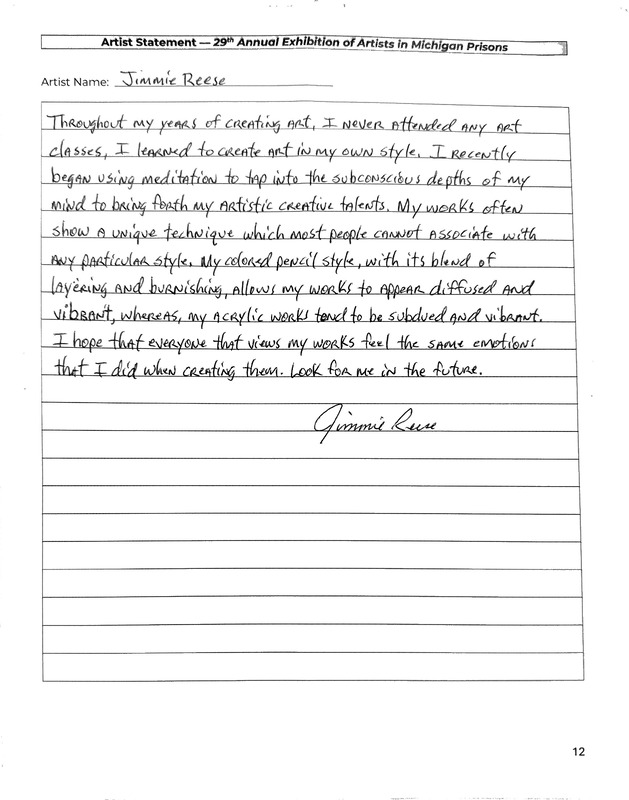 Artist Statement — 29th Annual Exhibition of Artists in Michigan Prisons
Artist Name: Jimmie Reese
Throughout my years of creating art, I never attended any art
classes, I learned to create art in my own style. I recently
began using meditation to tap into the subconscious depths of my
mind to bring forth my artistic creative talents. My works often
show a unique technique which most people cannot associate with
any particular style. My colored pencil style, with its blend of
layering and burnishing, allows my works to appear diffused and
vibrant, whereas, my acrylic works tend to be subdued and vibrant.
I hope that everyone that views my works feel the same emotions
that I did when creating them. Look for me in the future.
Jimmie Reese
12